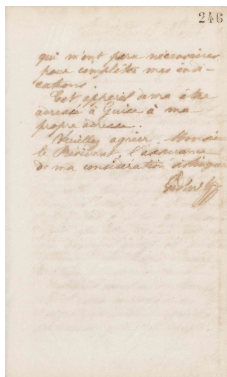 246
qui m'ont paru nécessaires
pour compléter mes indi-
cations.
Cet appareil aura à être
adressé à Guise à ma
propre adresse.
Veuillez agréer, Monsieur
le Président, l'assurance
de ma considération distinguée
Godin